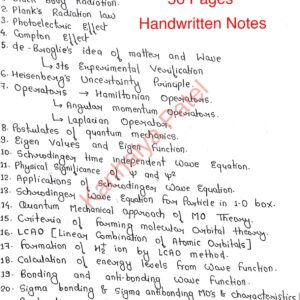 Black Body Radiation.
50 Pages
Handwritten Notes
2. Plank's Radiation law
3. Photoelectric Effect
4. Compton Effect
5. de-Broglie's idea of matter and Wave
↳ Its Experimental Verification
6. Heisenberg's Uncertainty Principle.
7. Operators → Hamiltonian Operators.
↳ Angular momentum Operators.
↳ Laplacian Operator.
8. Postulates of quantum mechanics.
9. Eigen Values and Eigen function.
10. Schrodinger time independent Wave Equation.
11. Physical significance of ψ and ψ²
12. Applications of Schrodinger Wave Equation.
13. Schrodinger Wave Equation for Particle in 1-D box.
14. Quantum Mechanical Approach of MO Theory.
15. Criteria of forming molecular Orbital theory.
16. LCAO [Linear Combination of Atomic Orbitals]
17. Formation of H₂⁺ ion by LCAO method.
18. Calculation of energy levels from Wave function.
19. Bonding and anti-bonding Wave function.
20. Sigma bonding & Sigma antibonding MOs & characteristics